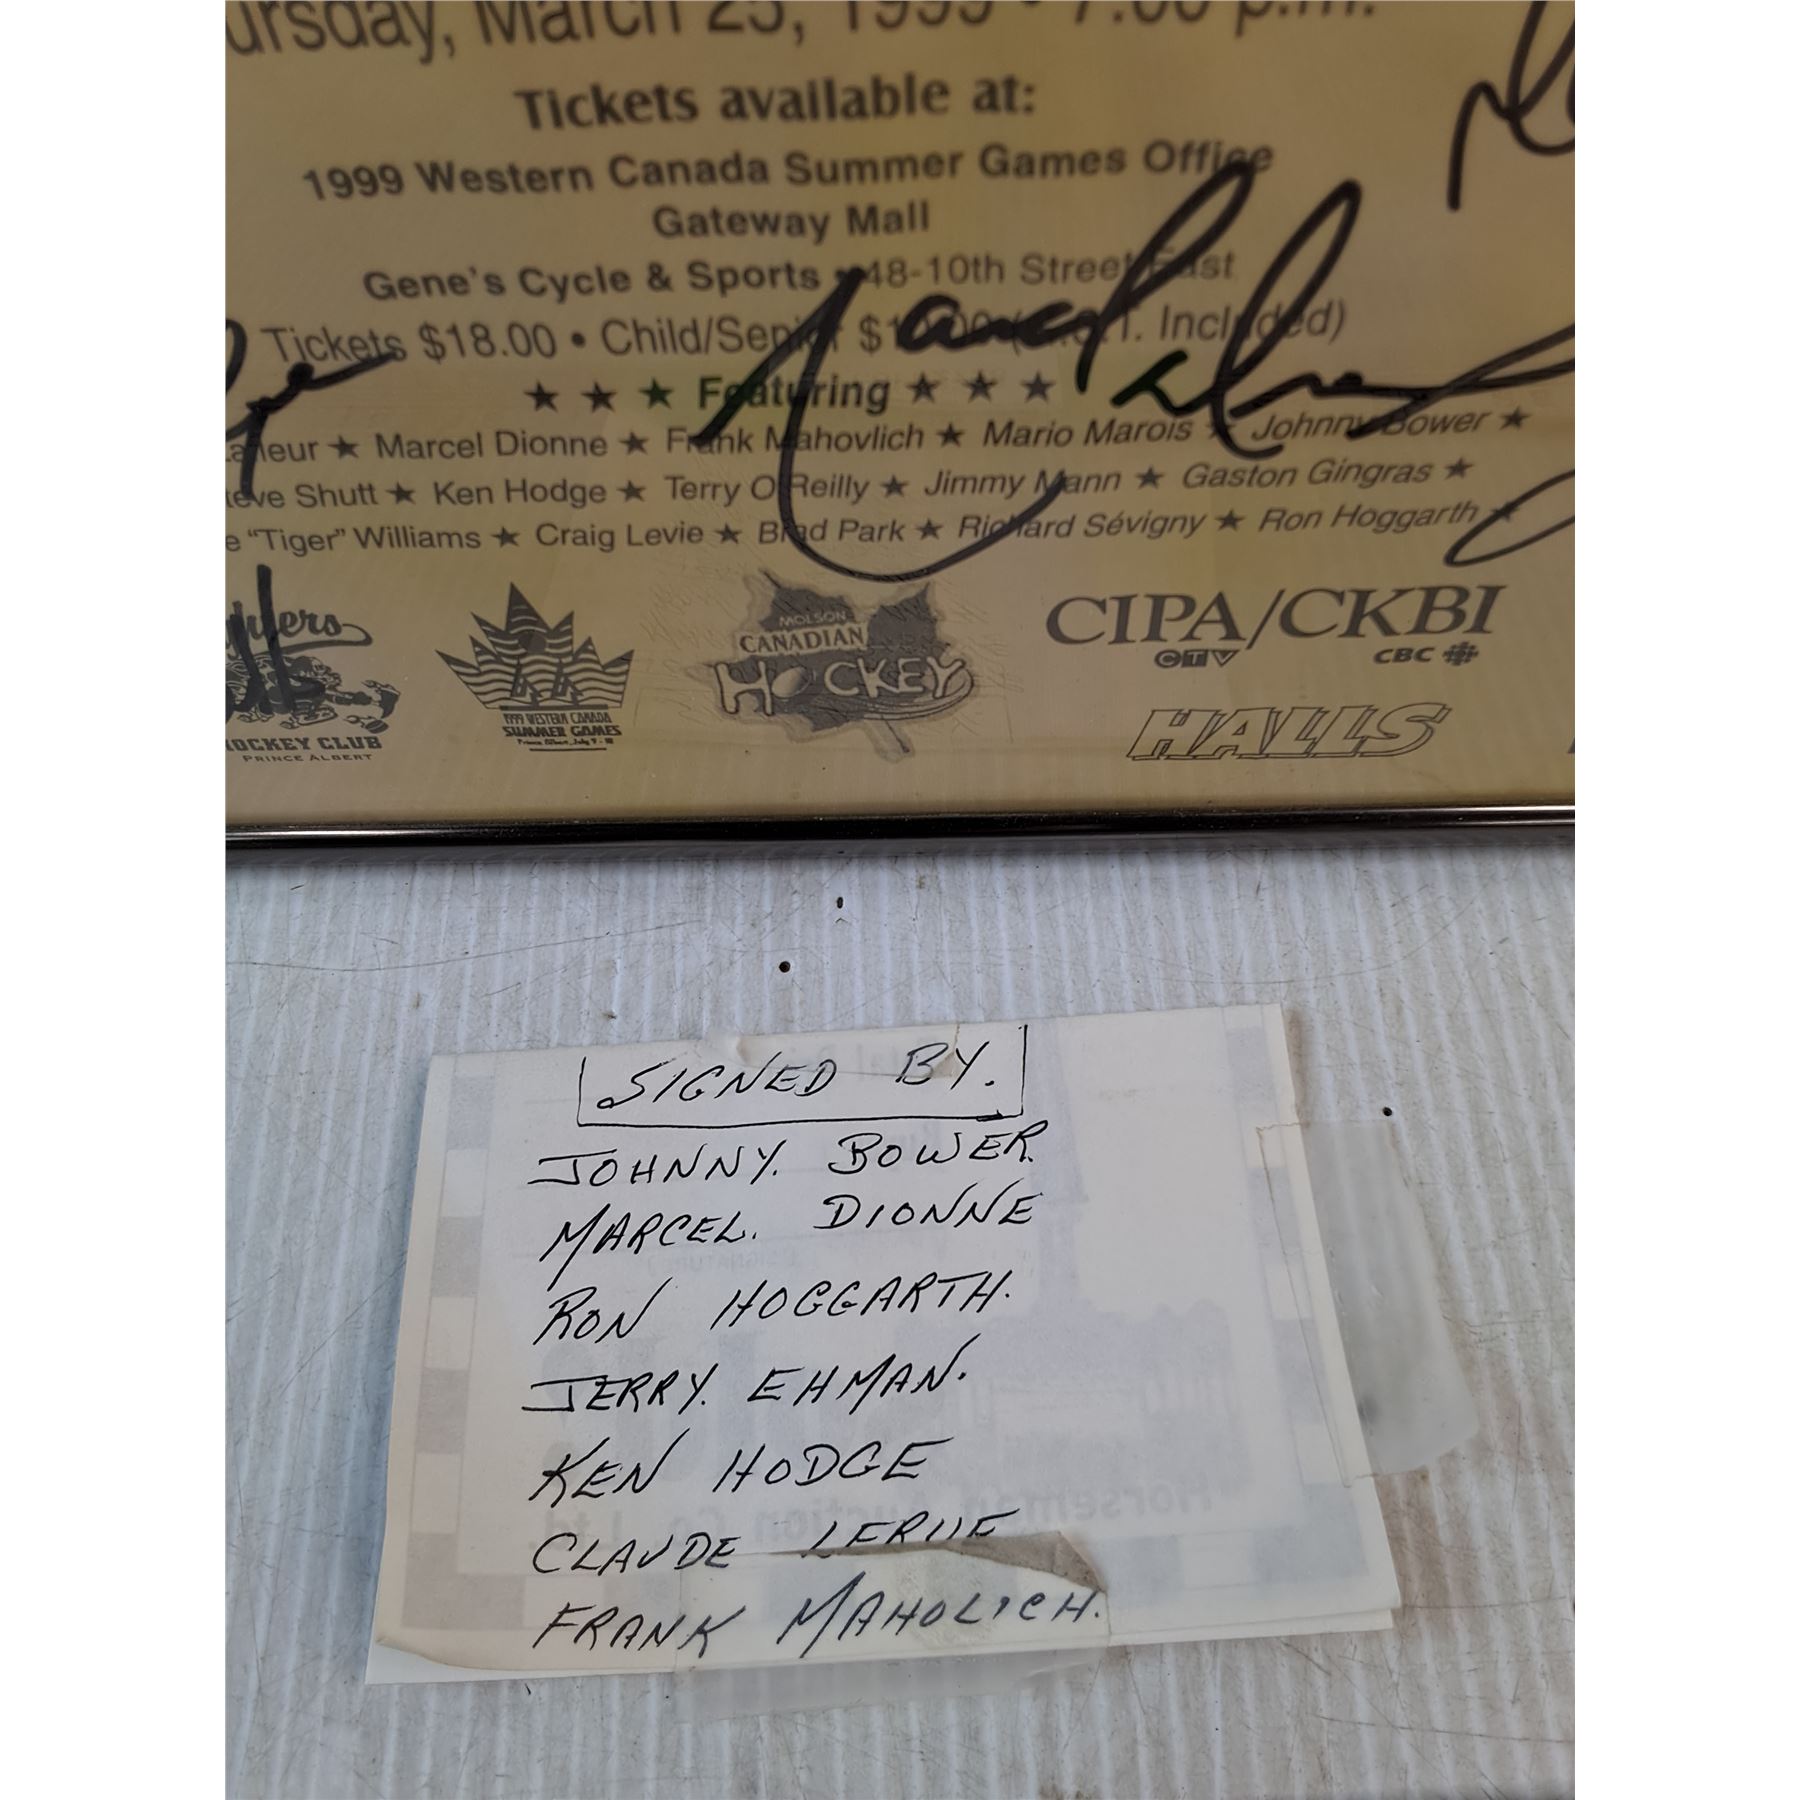 ursday, March 25, 1999 • 7:00 p.m.
Tickets available at:
1999 Western Canada Summer Games Office
Gateway Mall
Gene's Cycle & Sports • 48-10th Street East
Tickets $18.00 • Child/Senior $ Included)
★ ★ ★ Featuring ★ ★ ★
afleur ★ Marcel Dionne ★ Frank Mahovlich ★ Mario Marois ★ Johnny Bower ★
teve Shutt ★ Ken Hodge ★ Terry O'Reilly ★ Jimmy Mann ★ Gaston Gingras ★
e "Tiger" Williams ★ Craig Levie ★ Brad Park ★ Richard Sévigny ★ Ron Hoggarth ★
HOCKEY CLUB
PRINCE ALBERT
1999 WESTERN CANADA
SUMMER GAMES
Prince Albert, July 9 - 18
MOLSON
CANADIAN
HOCKEY
CIPA/CKBI
CTV CBC
HALLS
SIGNED BY.
JOHNNY. BOWER.
MARCEL. DIONNE
RON HOGGARTH.
JERRY. EHMAN.
KEN HODGE
CLAUDE
FRANK MAHOLICH.